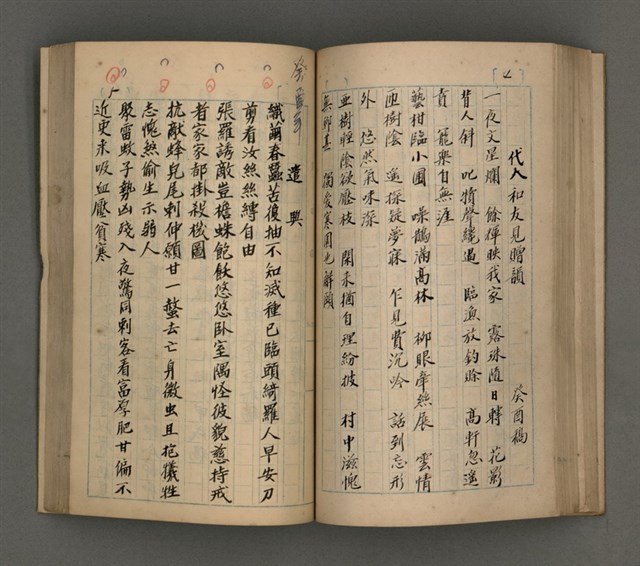 代人和友見贈韻
癸酉稿
一夜文星爛 餘輝映我家 露珠隨日轉 花影
背人斜 叱犢聲纔過 臨漁放釣賒 高軒忽遙
賁 簞樂自無涯
藝柑臨小圃 噪鵲滿高林 柳眼牽絲展 雲情
匝樹陰 遙探從夢寐 乍見費沉吟 話到忘形
外 悠然氣味深
亞樹輕陰欲壓枝 閑來猶自理紛披 村中滋愧
無鄰其 獨愛寒園也解頤
癸酉年
遣興
纖繭春蠶苦復抽不知滅種已臨頭綺羅人早安刀
剪看汝絲絲縛自由
張羅誘敵豈檐蛛飽飫悠悠臥室隅怪彼貌慈持戒
者家家都掛殺機圖
抗敵蜂兒尾刺伸頗甘一螫去亡身微虫且抱犧牲
志愧煞偷生示弱人
聚雷蚊子勢凶殘入夜驚同刺客看富厚肥甘偏不
近更來吸血壓貧寒